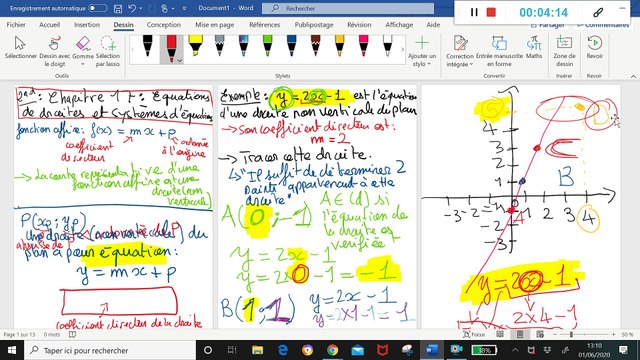 Enregistrement automatique
Document1 - Word
Rechercher
00:04:14
Fichier Accueil Insertion Dessin Conception Mise en page Références Publipostage Révision Affichage Aide
Partager
Commentaires
Dessiner avec le doigt
Gomme
Sélection par lasso
Convertir
Entrée manuscrite en forme
Entrée manuscrite en
Zone de dessin
Relecture
2nd: Chapitre 17: Équations
de droites et systèmes d'équations
fonction affine: f(x) = mx + p
coefficient directeur
ordonnée à l'origine
→ La courbe représentative d'une
fonction affine est une
droite (non
verticale)
P(xp; yp)
Une droite (non verticale) du
plan a pour équation:
y = mx + p
coefficient directeur de la droite
Exemple: y = 2x - 1 est l'équation
d'une droite non verticale du plan
→ Son coefficient directeur est:
m = 2
→ Tracer cette droite.
Il suffit de déterminer 2
points appartenant à cette
droite
A(0; -1)
A∈(d) si
l'équation de
la droite est
vérifiée
y = 2x - 1
y = 2x0 - 1 = -1
B(1; 1)
y = 2x - 1
y = 2x1 - 1 = 1
5
4
3
2
1
-3 -2 -1
1 2 3 4
-2
-3
A
B
C
D
y = 2x - 1
2x4 - 1
Page 1 sur 13
0 mots
50 %
Taper ici pour rechercher
38%
13:10
01/06/2020